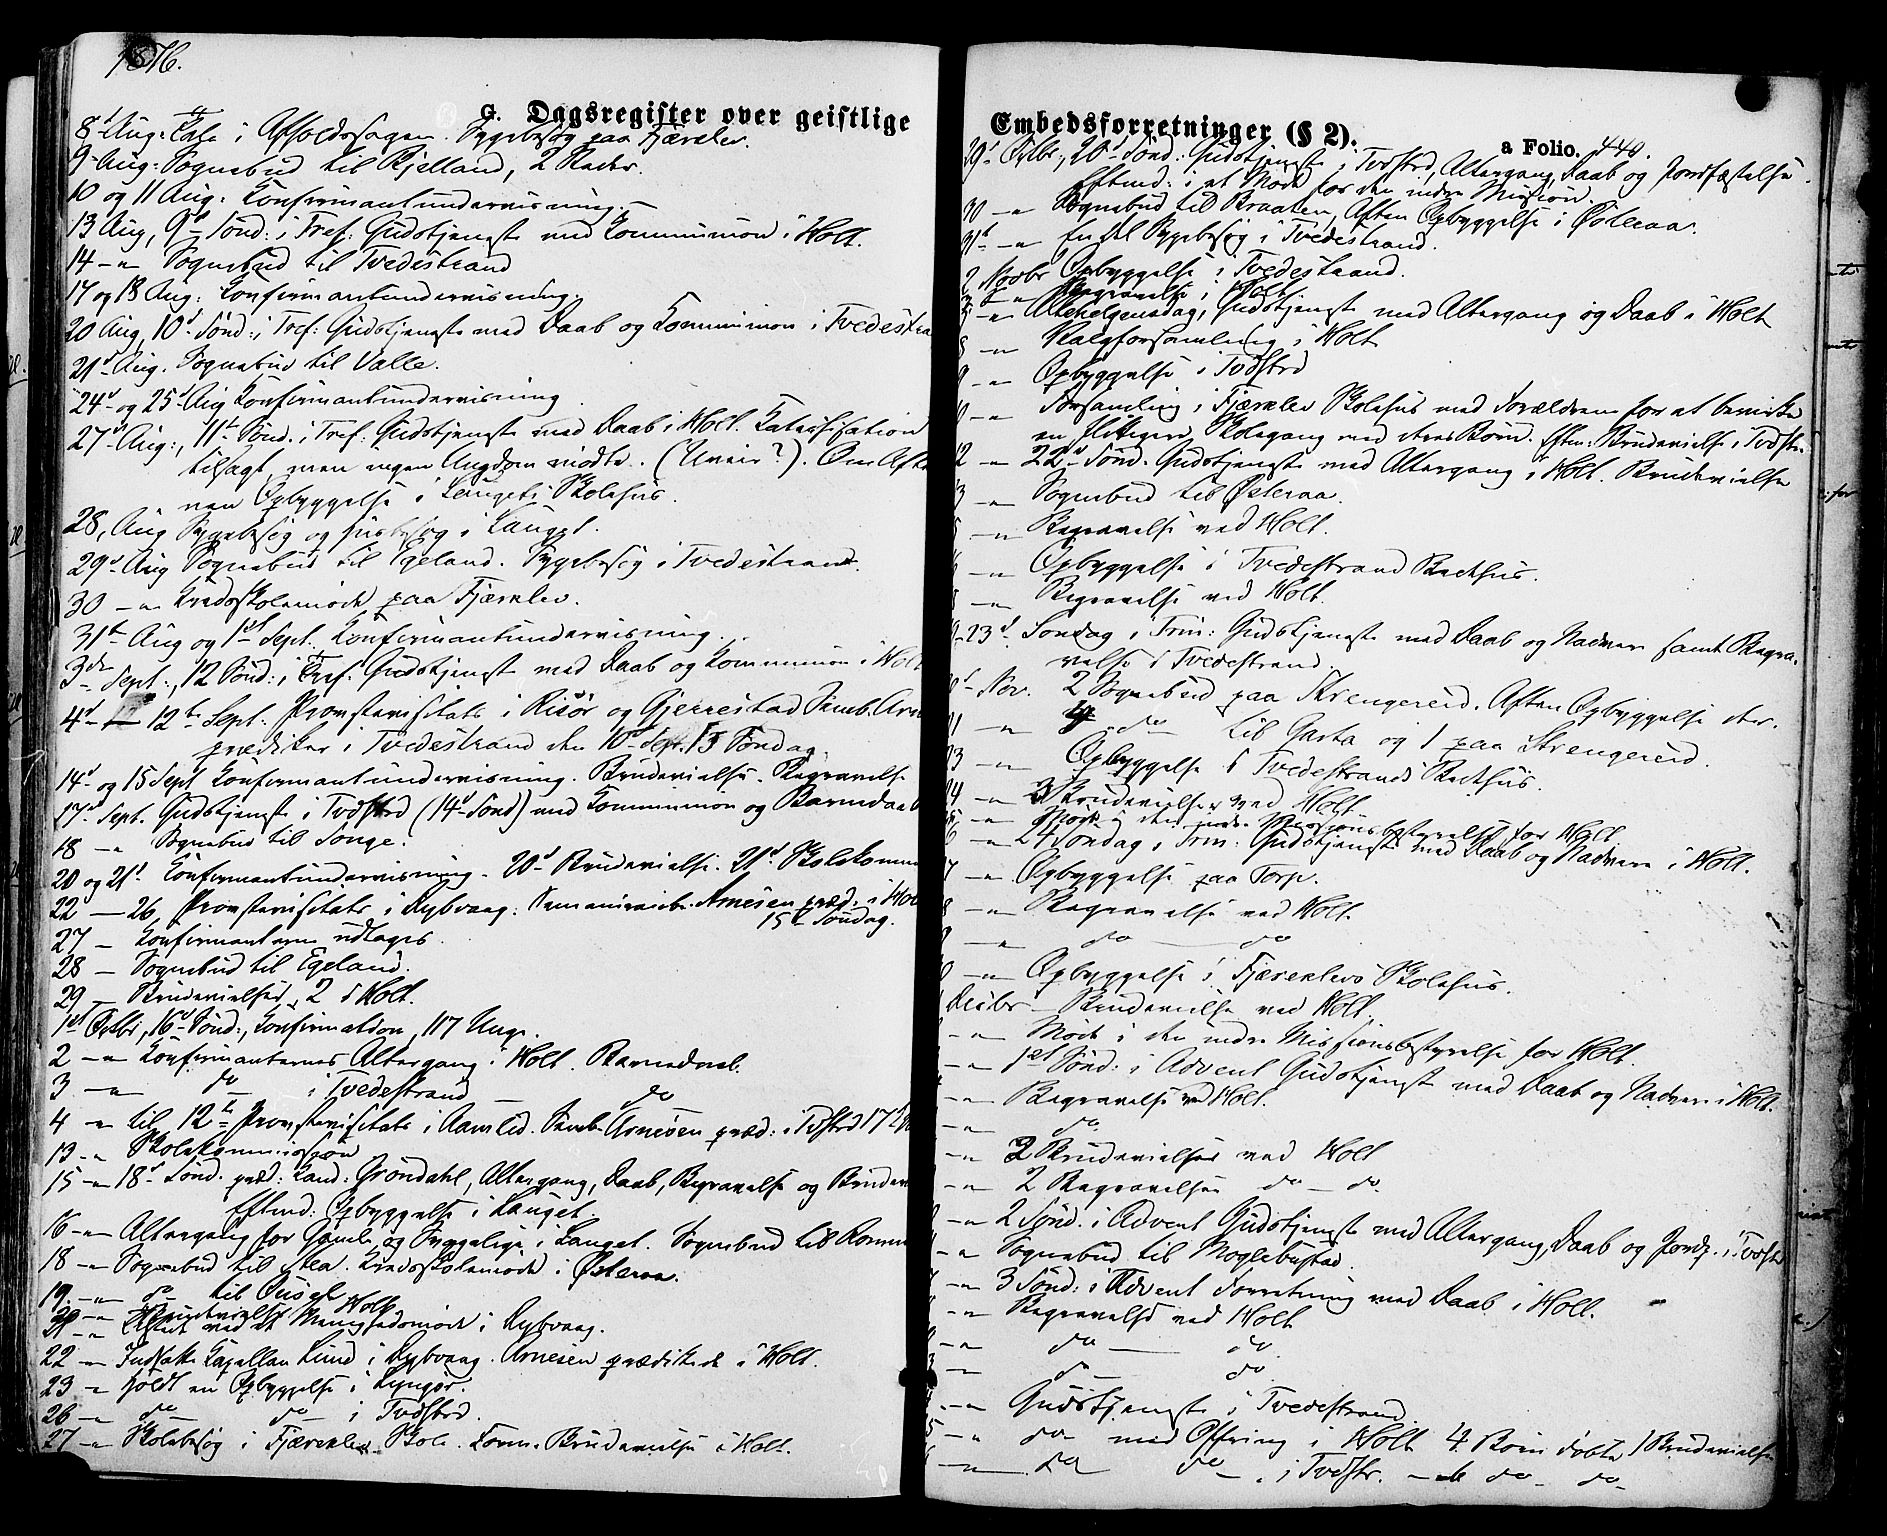 1876.
G. Dagsregister over geistlige
8d Aug: i Afholdssagen. Sygebesøg paa Fjærekleiv.
9 Aug: Sognebud til Kjelland, 2 Steder.
10 og 11 Aug: Konfirmantundervisning.
13 Aug, 9d Sønd: i Tref: Gudstjeneste med Kommunion i Holt.
14 – " Sognebud til Tvedestrand
17 og 18 Aug: Konfirmantundervisning.
20 Aug, 10d Sønd: i Tref: Gudstjeneste med Daab og Kommunion i Tvedestra
21d Aug. Sognebud til Valle.
24d og 25d Aug Konfirmantundervisning
27d Aug:, 11te Sønd. i Tref: Gudstjeneste med Daab i Holt. Katechisation
tilsagt, men ingen Ungdom mødte. (Uveir?). Om Afte
nen Opbyggelse i Lauget's Skolehus.
28, Aug Sygebesøg og Husbesøg i Lauget.
29d Aug Sognebud til Egeland. Sygebesøg i Tvedestrand.
30 – " Kredsskolemøde paa Fjærekleiv.
31te Aug og 1st Sept. Konfirmantundervisning.
3die Sept:, 12 Sønd: i Tref: Gudstjeneste med Daab og Kommunion i Holt
4d – 12te Sept: Provstevisitats i Risør og Gjerrestad
prædiker i Tvedestrand den 10d Sept. 13 Søndag.
14d og 15 Sept Konfirmantundervisning. Brudevielse. Begravelse
17d Sept. Gudstjeneste i Tvdstrd (14d Sønd) med Kommunion og Barnedaab
18 – " Sognebud til Songe.
20 og 21d Konfirmantundervisning. 20d Brudevielse. 21d Skolekomm
22 – 26, Provstevisitats i Dybvaag: Arnesen præd. i Hol
15d Søndag.
27 – Konfirmanterne udtages.
28 – Sognebud til Egeland.
29 – Brudevielser, 2 i Holt.
1st Octbr, 16d Sønd:, Konfirmation, 117 Unge.
2 – " Konfirmanternes Altergang i Holt. Barnedaab.
3 – " do i Tvedestrand – do
4 – " til 12te Provstevisitats i Aamlid. Arnesen præd: i Tvdstrd 17d
13 – " Skolekommission
15 – " 18d Sønd. præd: Kand: Grøndahl, Altergang, Daab, Begravelse og Brudevi
Eftmd: Opbyggelse i Lauget.
16 – " Altergang for Gamle og Sygelige i Lauget. Sognebud til
18 – " Sognebud til Kredsskolemøde i Østeraa.
19. – " do til
– " Brudevielse Holt
21 – " ved et Menighedsmøde i Dybvaag.
22 – " Indsatte Kapellan Lund i Dybvaag. Arnesen prædikede i Holt.
23 – " Holdt en Opbyggelse i Lyngør.
26 – " do – do – i Tvdstrd.
27 – " Skolebesøg i Fjærekleiv Skole. Brudevielse i Holt.
Embedsforretninger (§ 2).
a Folio. 440.
29d Octbr, 20d Sønd: Gudstjeneste i Tvdstrd, Altergang, Daab og Jordfæstelse.
Eftmd: i et Møde for den indre Mission.
30 – " Sognebud til Braaten, Aften Opbyggelse i Østeraa.
31d – " En Del Sygebesøg i Tvedestrand.
2 Novbr Opbyggelse i Tvedestrand.
– " Begravelse i Holt
5 – " Allehelgensdag, Gudstjeneste med Altergang og Daab i Holt
8 – " Valgforsamling i Holt
9 – " Opbyggelse i Tvdstrd
– " Forsamling i Fjærekleiv Skolehus med Forældrene for at bevirke
en flittigere Skolegang med deres Børn. Eftm: Brudevielse i Tvdstr.
12 – " 22d Sønd. Gudstjeneste med Altergang i Holt. Brudevielse
13 – " Sognebud til Østeraa.
5 – " Begravelse ved Holt.
6 – " Opbyggelse i Tvedestrand Bedehus.
– " Begravelse ved Holt.
9 – 23d Søndag i Trin: Gudstjeneste med Daab og Nadvere samt Begra-
velse i Tvedestrand.
Nov. 2 Sognebud paa Strengereid. Aften Opbyggelse der.
21 – " do til Garta og 1 paa Strengereid.
23 – " Opbyggelse i Tvedestrands Bedehus.
24 – " 3 Brudevielser ved Holt
25 – " Møde i den indre Missionsbestyrelse for Holt
6 – " 24 Søndag i Trin: Gudstjeneste med Daab og Nadvere i Holt.
7 – " Opbyggelse paa Torp.
8 – " Begravelse ved Holt.
– " do – do
0 – " Opbyggelse i Fjærekleivs Skolehus.
Decbr – Brudevielse ved Holt.
– " Møde i den indre Missionsbestyrelse for Holt
– " 1st Sønd: i Advent Gudstjeneste med Daab og Nadvere i Holt.
– " Begravelse ved Holt.
– " do
– " 2 Brudevielser ved Holt
– " 2 Begravelser do – do.
– " 2 Sønd. i Advent Gudstjeneste med Altergang, Daab og Jordf. i Tvdstr
– " Sognebud til Moglebustad.
– " 3 Sønd: i Advent Forretning med Daab i Holt.
– " Begravelse ved Holt
– " do – do
– " do – do
– " Gudstjeneste i Tvedestrand.
5 – " do – med Offring i Holt 4 Børn døbte 1 Brudevielse
– " do do – i Tvdstr. – do – do –